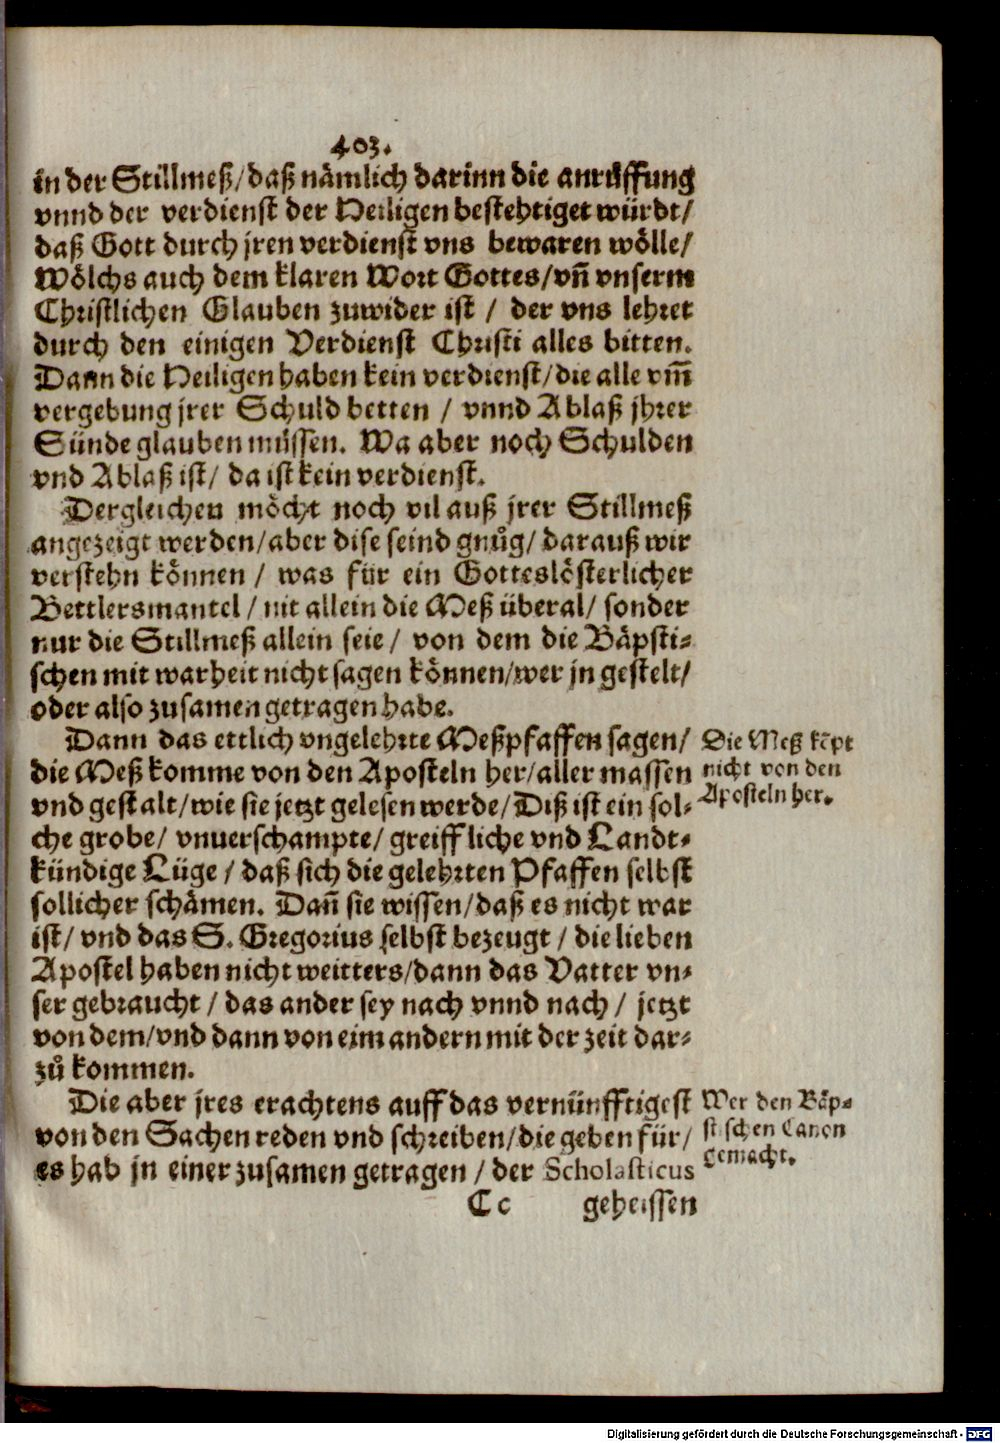 403.
in der Stillmeß/daß nämlich darinn die anrüffung
vnnd der verdienst der Heiligen bestehtiget würdt/
daß Gott durch jren verdienst vns bewaren wölle/
Wölchs auch dem klaren Wort Gottes/vñ vnserm
Christlichen Glauben zuwider ist / der vns lehret
durch den einigen Verdienst Christi alles bitten.
Dann die Heiligen haben kein verdienst/die alle vm̃
vergebung jrer Schuld betten / vnnd Ablaß jhrer
Sünde glauben müssen. Wa aber noch Schulden
vnd Ablaß ist/ da ist kein verdienst.
Dergleichen möcht noch vil auß jrer Stillmeß
angezeigt werden/aber dise seind gnůg/ darauß wir
verstehn können / was für ein Gotteslösterlicher
Bettlersmantel / nit allein die Meß überal/ sonder
nur die Stillmeß allein seie / von dem die Bäpsti-
schen mit warheit nicht sagen können/wer jn gestelt/
oder also zusamen getragen habe.
Dann das ettlich vngelehrte Meßpfaffen sagen/
die Meß komme von den Aposteln her/aller massen
vnd gestalt/wie sie jetzt gelesen werde/Diß ist ein sol-
che grobe/ vnuerschampte/ greiffliche vnd Landt-
kündige Lüge / daß sich die gelehrten Pfaffen selbst
sollicher schämen. Dañ sie wissen/daß es nicht war
ist/ vnd das S. Gregorius selbst bezeugt / die lieben
Apostel haben nicht weitters/dann das Vatter vn-
ser gebraucht / das ander sey nach vnnd nach / jetzt
von dem/vnd dann von eim andern mit der zeit dar-
zů kommen.
Die Meß kōpt
nicht von den
Aposteln her.
Die aber jres erachtens auff das vernünfftigest
von den Sachen reden vnd schreiben/die geben für/
es hab jn einer zusamen getragen / der Scholasticus
Wer den Bäp-
stischen Canon
gemacht.
Cc geheissen
Digitalisierung gefördert durch die Deutsche Forschungsgemeinschaft - DFG